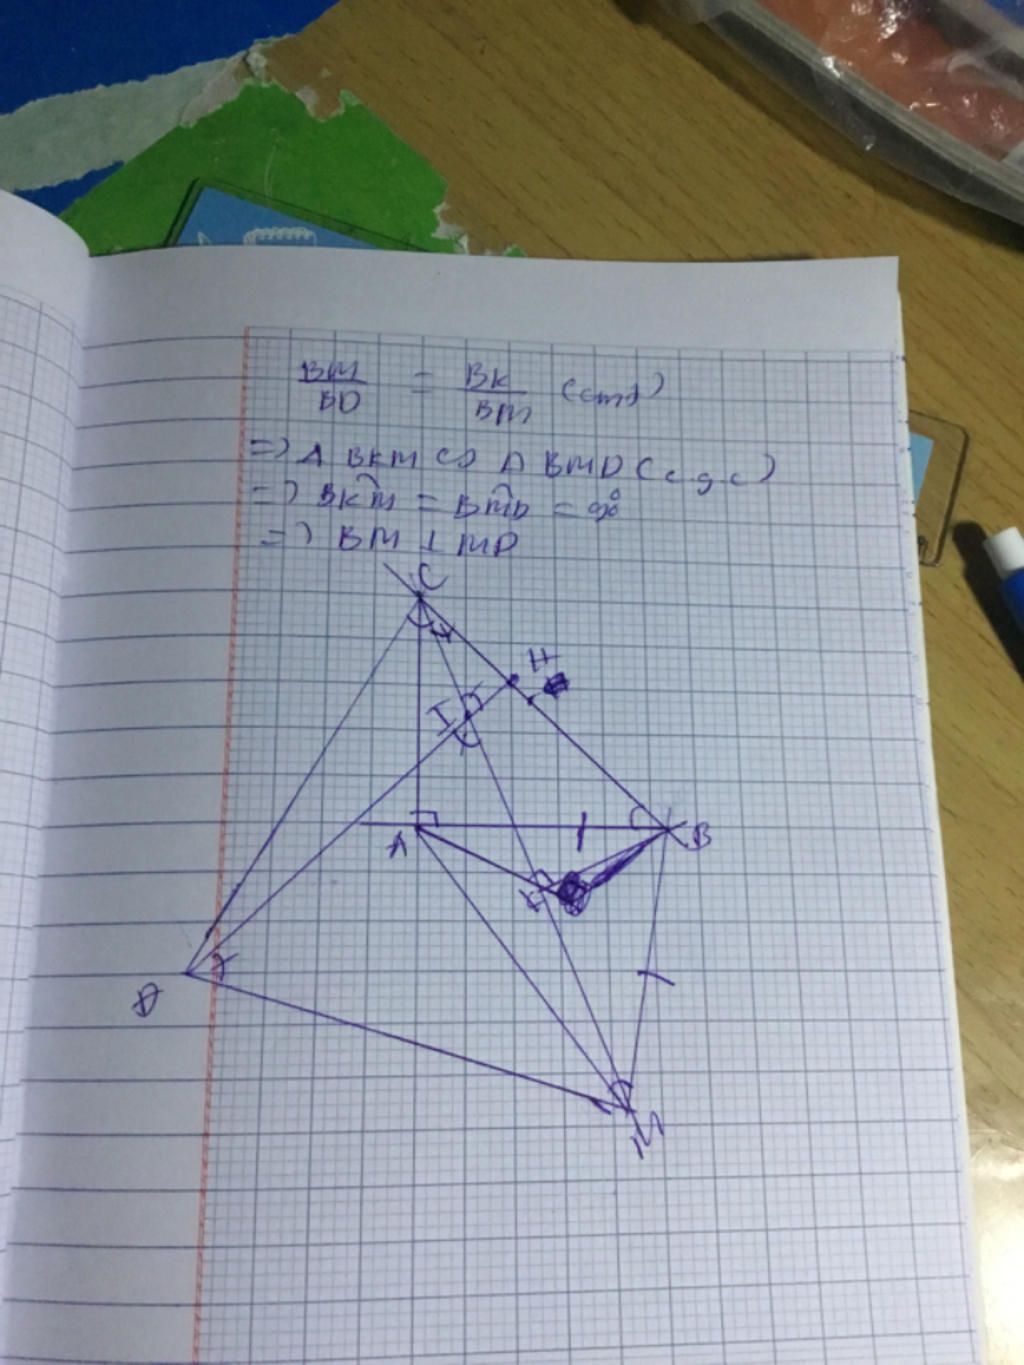 BM/BD = BK/BM (cmt)
=> Δ BKM ∽ Δ BMD (c g c)
=> BK̂M = BM̂D = 90°
=> BM ⊥ MD
C
H
I
A
B
K
D
M